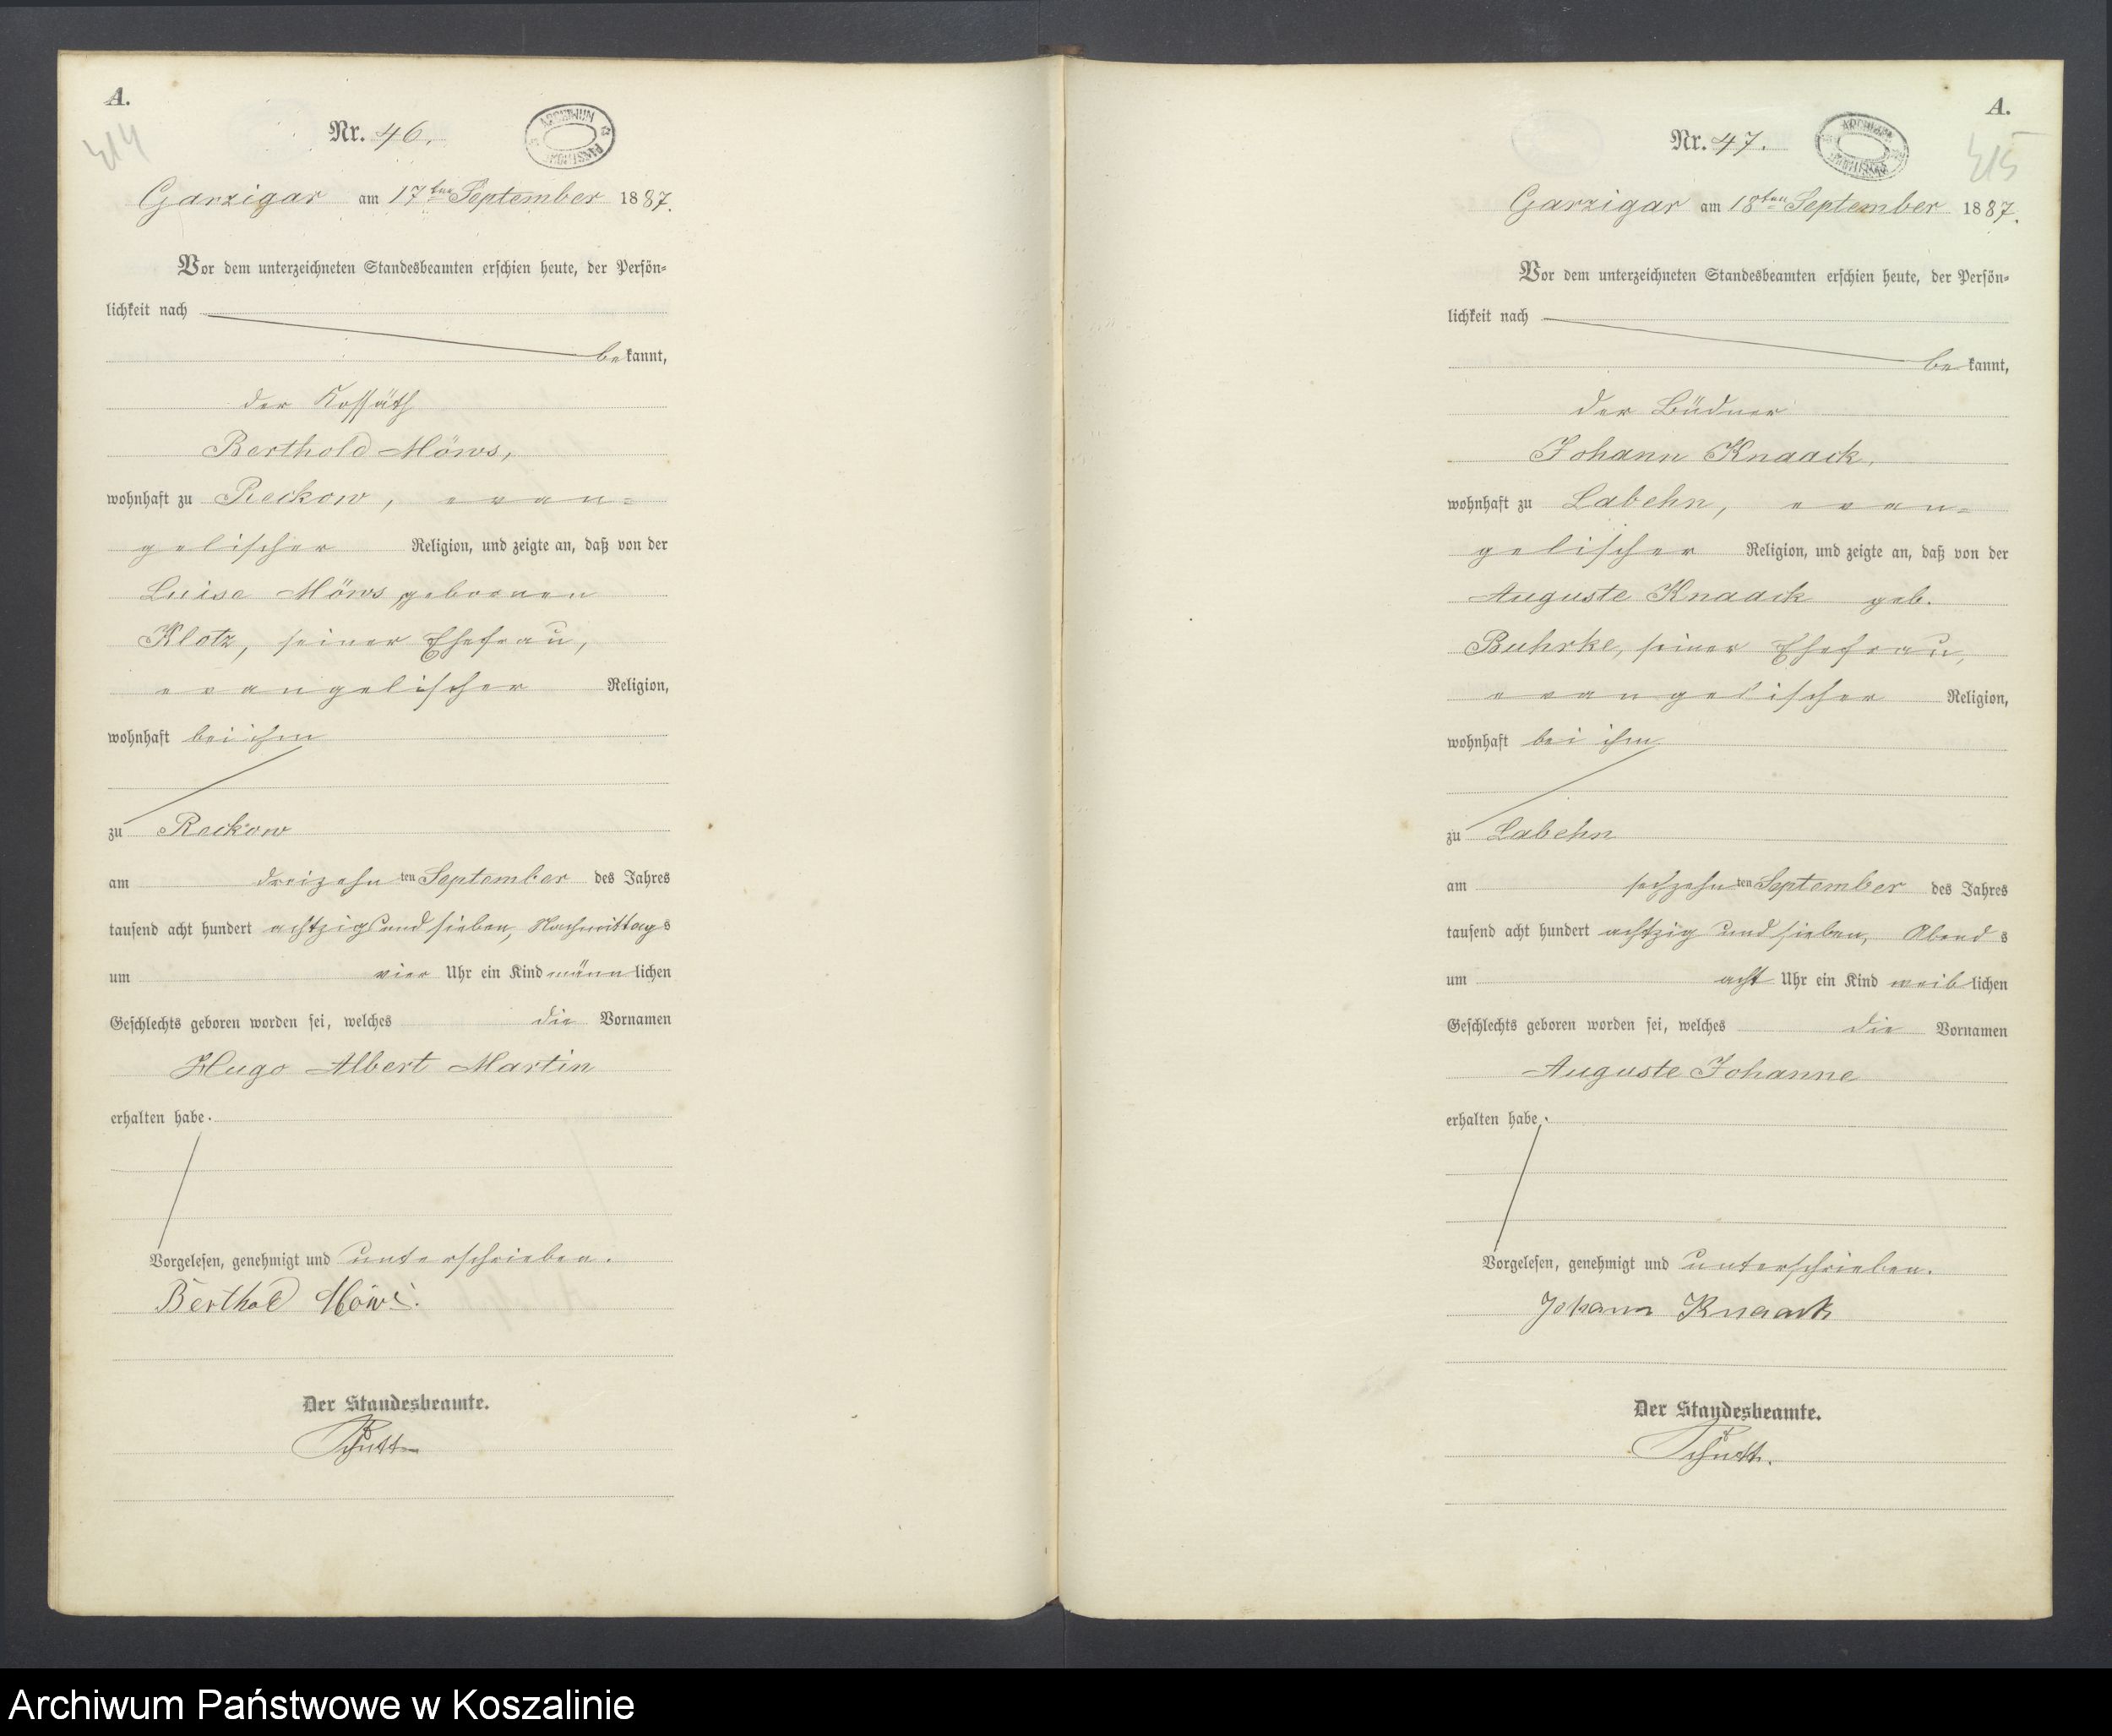 A.
414
Nr. 46.
ARCHIWUM PAŃSTWOWE
Garzigar am 17ten September 1887.
Vor dem unterzeichneten Standesbeamten erschien heute, der Persön-
lichkeit nach
bekannt,
der Kossäth
Berthold Möws,
wohnhaft zu Reckow, evan-
gelischer Religion, und zeigte an, daß von der
Luise Möws geborenen
Klotz, seiner Ehefrau,
evangelischer Religion,
wohnhaft bei ihm
zu Reckow
am dreizehnten September des Jahres
tausend acht hundert achtzig und sieben, Nachmittags
um vier Uhr ein Kind männlichen
Geschlechts geboren worden sei, welches die Vornamen
Hugo Albert Martin
erhalten habe.
Vorgelesen, genehmigt und unterschrieben.
Berthold Möws.
Der Standesbeamte.
A.
415
Nr. 47.
ARCHIWUM PAŃSTWOWE
Garzigar am 18ten September 1887.
Vor dem unterzeichneten Standesbeamten erschien heute, der Persön-
lichkeit nach
bekannt,
der Büdner
Johann Knaack,
wohnhaft zu Labehn, evan-
gelischer Religion, und zeigte an, daß von der
Auguste Knaack geb.
Buhrke, seiner Ehefrau,
evangelischer Religion,
wohnhaft bei ihm
zu Labehn
am sechzehnten September des Jahres
tausend acht hundert achtzig und sieben, Abends
um acht Uhr ein Kind weiblichen
Geschlechts geboren worden sei, welches die Vornamen
Auguste Johanne
erhalten habe.
Vorgelesen, genehmigt und unterschrieben.
Johann Knaack
Der Standesbeamte.
Archiwum Państwowe w Koszalinie